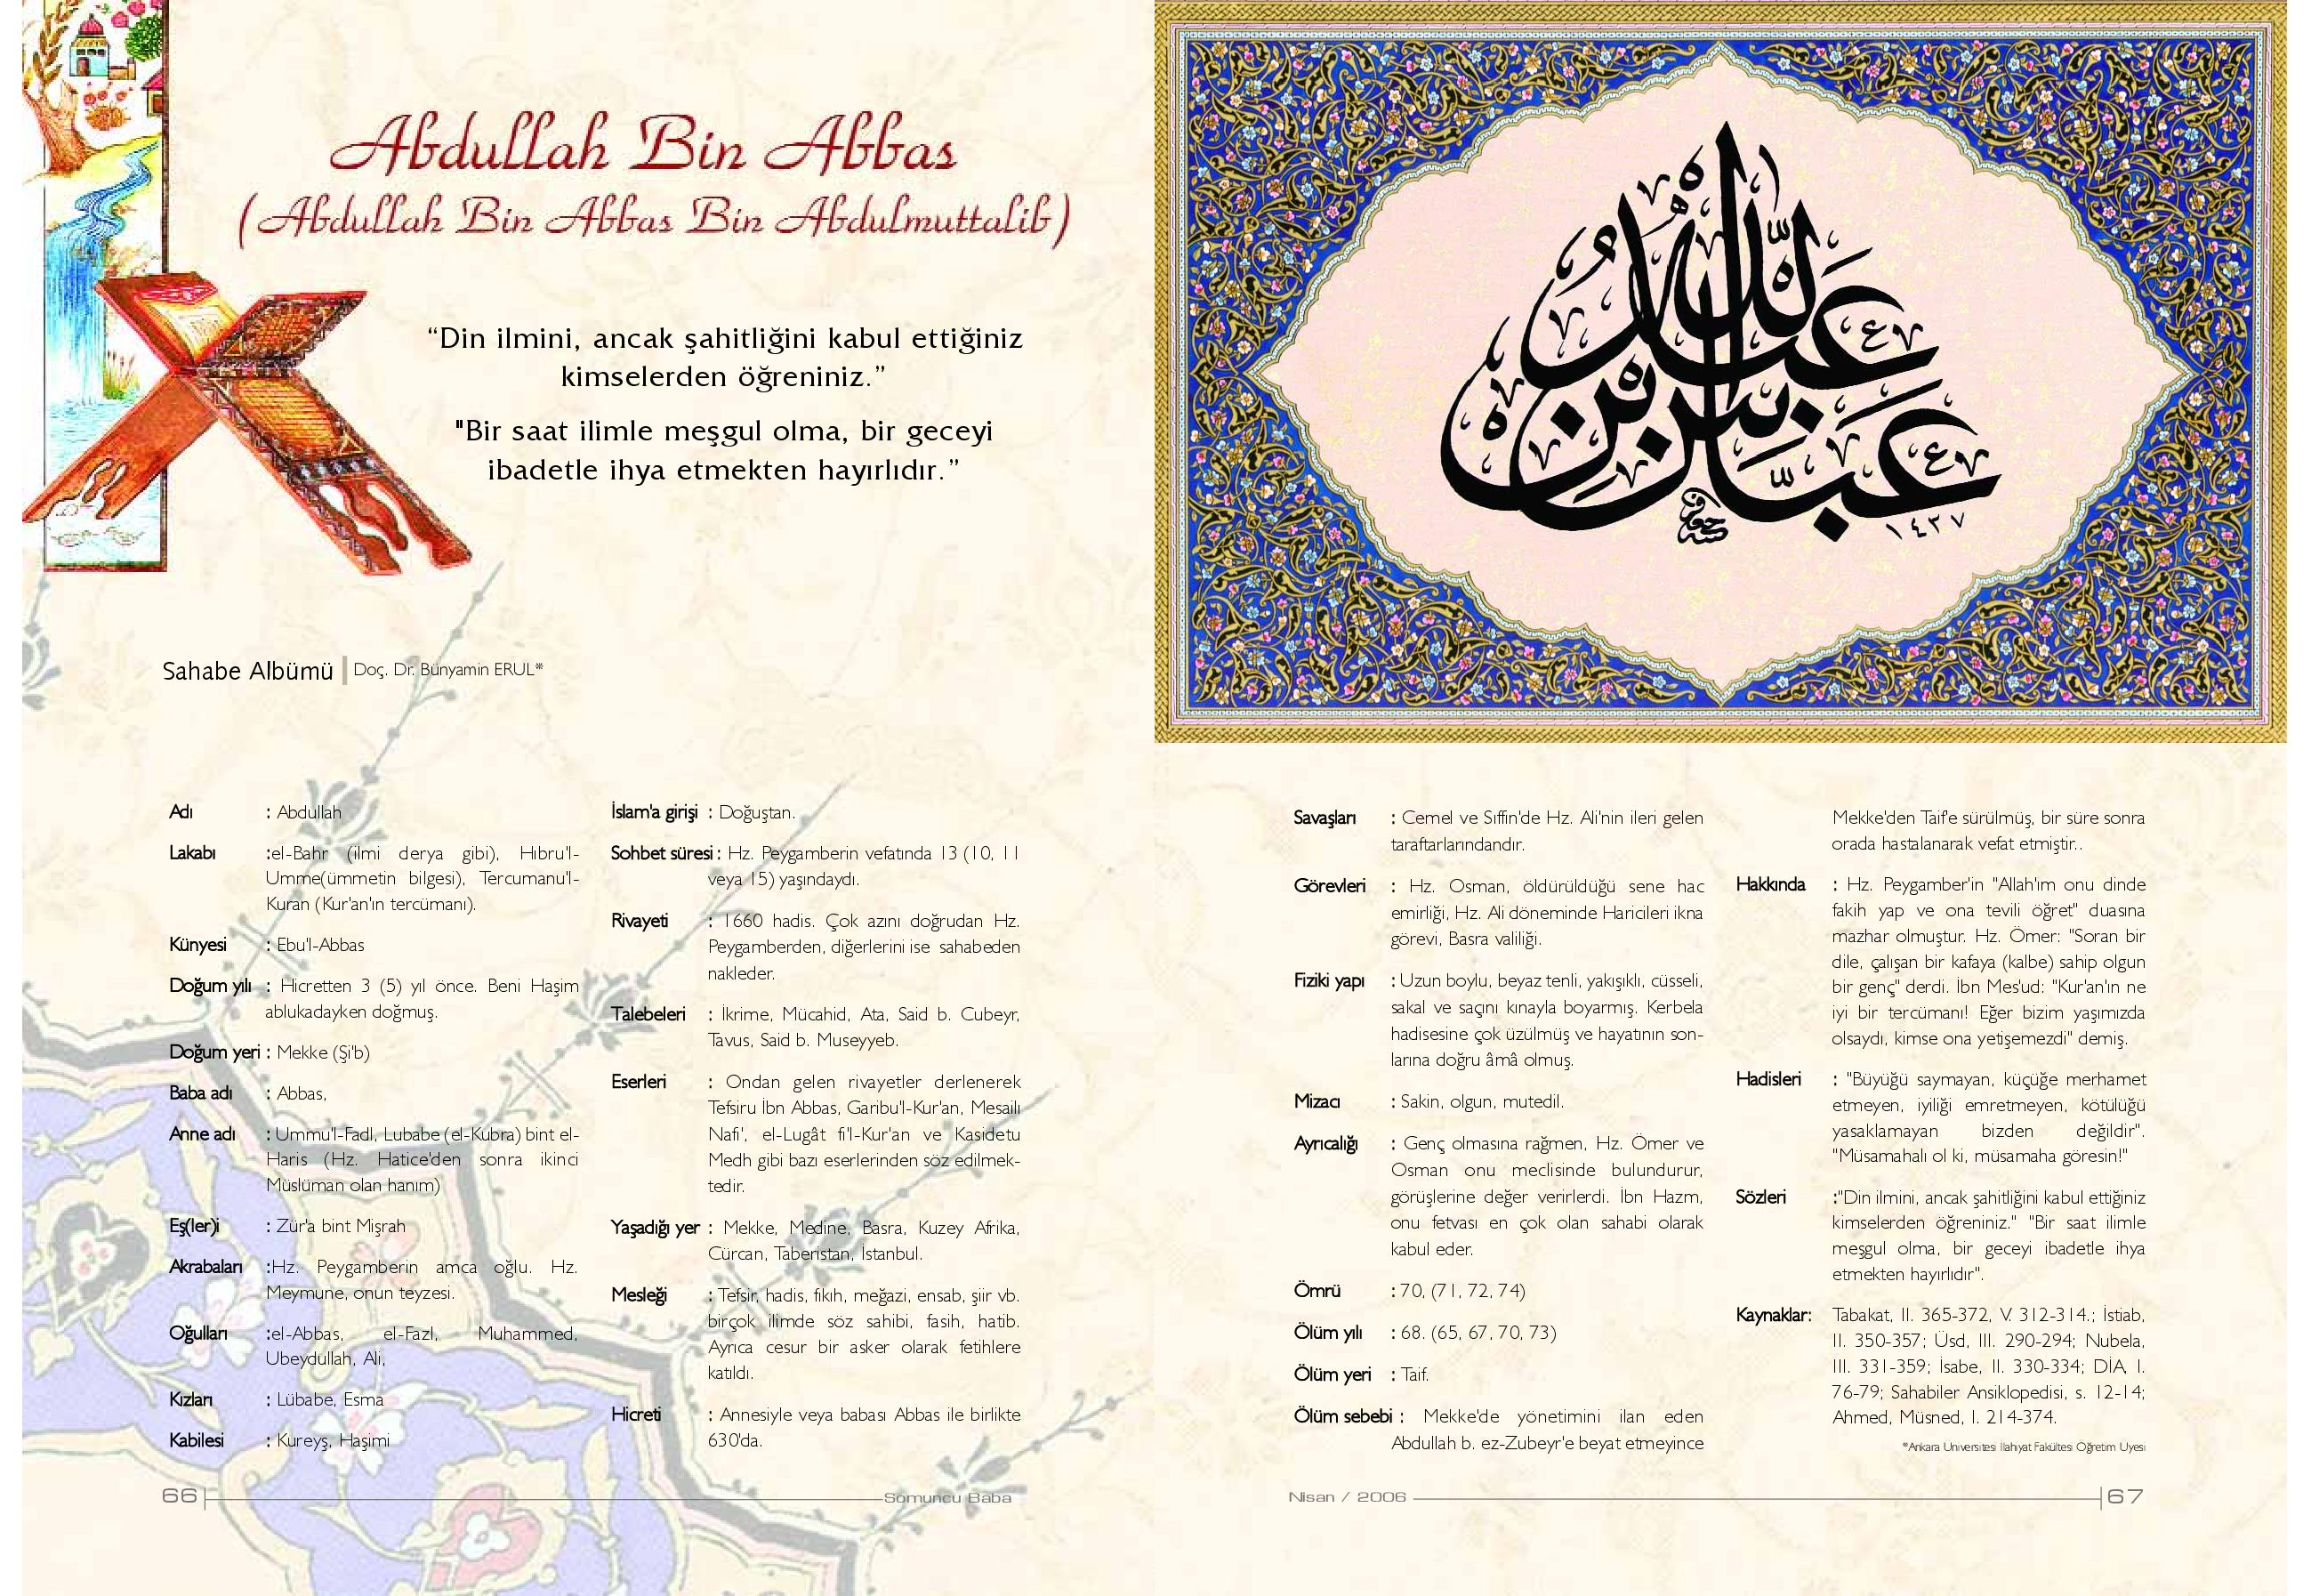 Abdullah Bin Abbas
(Abdullah Bin Abbas Bin Abdulmuttalib)
“Din ilmini, ancak şahitliğini kabul ettiğiniz
kimselerden öğreniniz.”
"Bir saat ilimle meşgul olma, bir geceyi
ibadetle ihya etmekten hayırlıdır.”
Sahabe Albümü | Doç. Dr. Bünyamin ERUL*
Adı : Abdullah
Lakabı :el-Bahr (ilmi derya gibi), Hıbru'l-
Umme(ümmetin bilgesi), Tercumanu'l-
Kuran (Kur'an'ın tercümanı).
Künyesi : Ebu'l-Abbas
Doğum yılı : Hicretten 3 (5) yıl önce. Beni Haşim
ablukadayken doğmuş.
Doğum yeri : Mekke (Şi'b)
Baba adı : Abbas,
Anne adı : Ummu'l-Fadl, Lubabe (el-Kubra) bint el-
Haris (Hz. Hatice'den sonra ikinci
Müslüman olan hanım)
Eş(ler)i : Zür'a bint Mişrah
Akrabaları :Hz. Peygamberin amca oğlu. Hz.
Meymune, onun teyzesi.
Oğulları :el-Abbas, el-Fazl, Muhammed,
Ubeydullah, Ali,
Kızları : Lübabe, Esma
Kabilesi : Kureyş, Haşimi
İslam'a girişi : Doğuştan.
Sohbet süresi : Hz. Peygamberin vefatında 13 (10, 11
veya 15) yaşındaydı.
Rivayeti : 1660 hadis. Çok azını doğrudan Hz.
Peygamberden, diğerlerini ise sahabeden
nakleder.
Talebeleri : İkrime, Mücahid, Ata, Said b. Cubeyr,
Tavus, Said b. Museyyeb.
Eserleri : Ondan gelen rivayetler derlenerek
Tefsiru İbn Abbas, Garibu'l-Kur'an, Mesailı
Nafi', el-Lugât fi'l-Kur'an ve Kasidetu
Medh gibi bazı eserlerinden söz edilmek-
tedir.
Yaşadığı yer : Mekke, Medine, Basra, Kuzey Afrika,
Cürcan, Taberistan, İstanbul.
Mesleği : Tefsir, hadis, fıkıh, meğazi, ensab, şiir vb.
birçok ilimde söz sahibi, fasih, hatib.
Ayrıca cesur bir asker olarak fetihlere
katıldı.
Hicreti : Annesiyle veya babası Abbas ile birlikte
630'da.
66 Somuncu Baba
عبد الله
بن عباس
١٤٢٧
Savaşları : Cemel ve Sıffin'de Hz. Ali'nin ileri gelen
taraftarlarındandır.
Görevleri : Hz. Osman, öldürüldüğü sene hac
emirliği, Hz. Ali döneminde Haricileri ikna
görevi, Basra valiliği.
Fiziki yapı : Uzun boylu, beyaz tenli, yakışıklı, cüsseli,
sakal ve saçını kınayla boyarmış. Kerbela
hadisesine çok üzülmüş ve hayatının son-
larına doğru âmâ olmuş.
Mizacı : Sakin, olgun, mutedil.
Ayrıcalığı : Genç olmasına rağmen, Hz. Ömer ve
Osman onu meclisinde bulundurur,
görüşlerine değer verirlerdi. İbn Hazm,
onu fetvası en çok olan sahabi olarak
kabul eder.
Ömrü : 70, (71, 72, 74)
Ölüm yılı : 68. (65, 67, 70, 73)
Ölüm yeri : Taif.
Ölüm sebebi : Mekke'de yönetimini ilan eden
Abdullah b. ez-Zubeyr'e beyat etmeyince
Mekke'den Taif'e sürülmüş, bir süre sonra
orada hastalanarak vefat etmiştir..
Hakkında : Hz. Peygamber'in "Allah'ım onu dinde
fakih yap ve ona tevili öğret" duasına
mazhar olmuştur. Hz. Ömer: "Soran bir
dile, çalışan bir kafaya (kalbe) sahip olgun
bir genç" derdi. İbn Mes'ud: "Kur'an'ın ne
iyi bir tercümanı! Eğer bizim yaşımızda
olsaydı, kimse ona yetişemezdi" demiş.
Hadisleri : "Büyüğü saymayan, küçüğe merhamet
etmeyen, iyiliği emretmeyen, kötülüğü
yasaklamayan bizden değildir".
"Müsamahalı ol ki, müsamaha göresin!"
Sözleri :"Din ilmini, ancak şahitliğini kabul ettiğiniz
kimselerden öğreniniz." "Bir saat ilimle
meşgul olma, bir geceyi ibadetle ihya
etmekten hayırlıdır".
Kaynaklar: Tabakat, II. 365-372, V. 312-314.; İstiab,
II. 350-357; Üsd, III. 290-294; Nubela,
III. 331-359; İsabe, II. 330-334; DİA, I.
76-79; Sahabiler Ansiklopedisi, s. 12-14;
Ahmed, Müsned, I. 214-374.
*Ankara Üniversitesi İlahiyat Fakültesi Öğretim Üyesi
Nisan / 2006 67